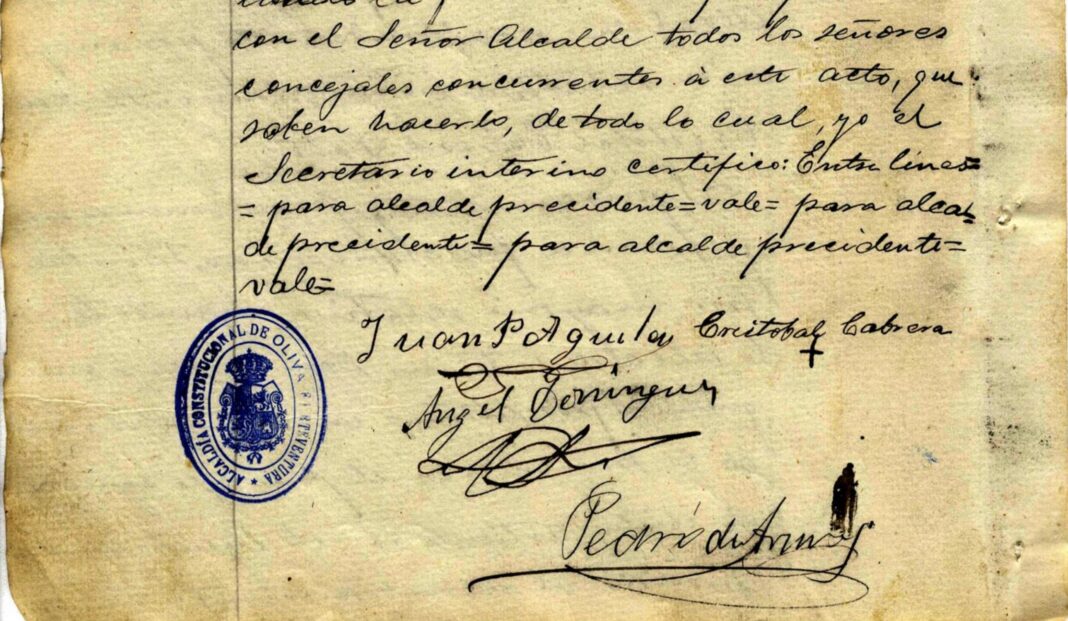 con el Señor Alcalde todos los señores
concejales concurrentes á este acto, que
saben hacerlo, de todo lo cual, yo el
Secretario interino certifico: Entre lineas=
= para alcalde precidente=vale= para alcal
de precidente= para alcalde precidente=
vale=
Juan P Aguilar Cristobal Cabrera
Angel Dominguez
Pedro de Armas
ALCALDÍA CONSTITUCIONAL DE OLIVA FUERTEVENTURA